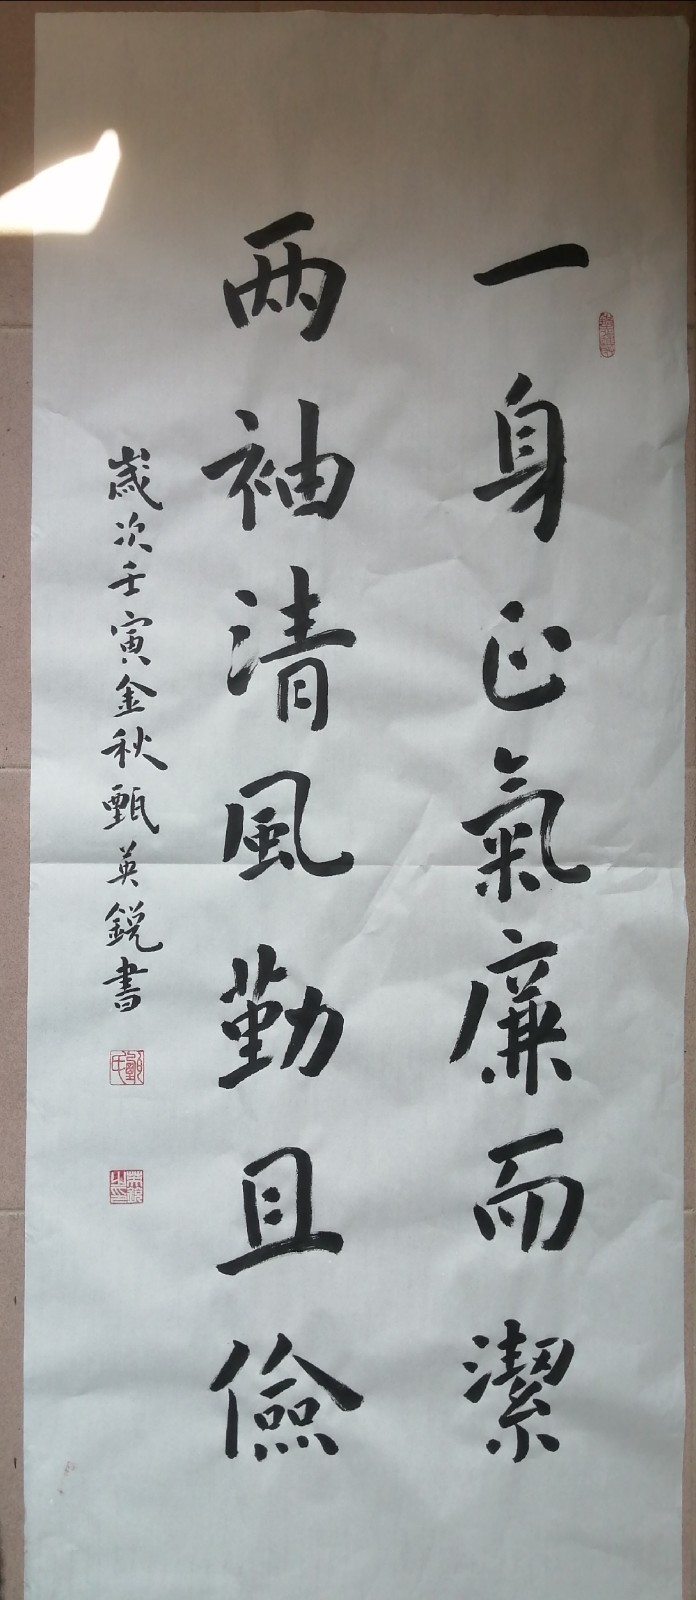 一身正氣廉而潔
两袖清風勤且儉
歲次壬寅金秋甄英銳書